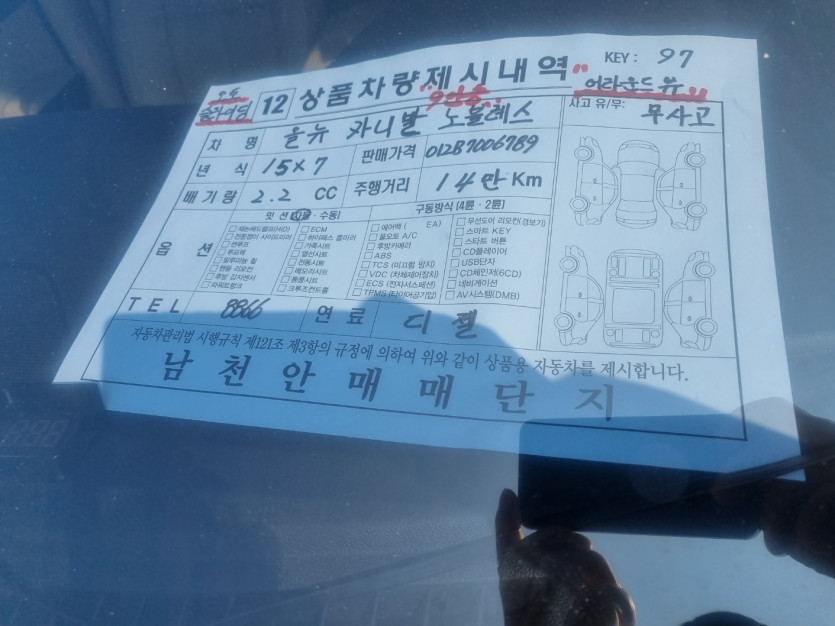 KEY : 97
오토
슬라이딩
12 상품차량제시내역
9인승
어라운드 뷰
차 명 올뉴 카니발 노블레스
사고 유/무: 무사고
년 식 15×7 판매가격 01287006789
배기량 2.2 CC 주행거리 14만 Km
옵 션
밋 션 (오토 · 수동)
구동방식 (4륜 · 2륜)
□ 제논헤드램프(HID)
□ 전동접이 사이드미러
□ 썬루프
□ 루프랙
□ 알루미늄 휠
□ 핸들 리모컨
□ 후방 감지센서
□ 파워트렁크
□ ECM
□ 하이패스 룸미러
□ 가죽시트
□ 열선시트
□ 전동시트
□ 메모리시트
□ 통풍시트
□ 크루즈컨트롤
□ 에어백 ( EA)
□ 풀오토 A/C
□ 후방카메라
□ ABS
□ TCS (미끄럼 방지)
□ VDC (차체제어장치)
□ ECS (전자서스펜션)
□ TPMS (타이어공기압)
□ 무선도어 리모컨(경보기)
□ 스마트 KEY
□ 스타트 버튼
□ CD플레이어
□ USB단자
□ CD체인저(6CD)
□ 네비게이션
□ AV시스템(DMB)
TEL 8866 연 료 디젤
자동차관리법 시행규칙 제121조 제3항의 규정에 의하여 위와 같이 상품용 자동차를 제시합니다.
남천안매매단지